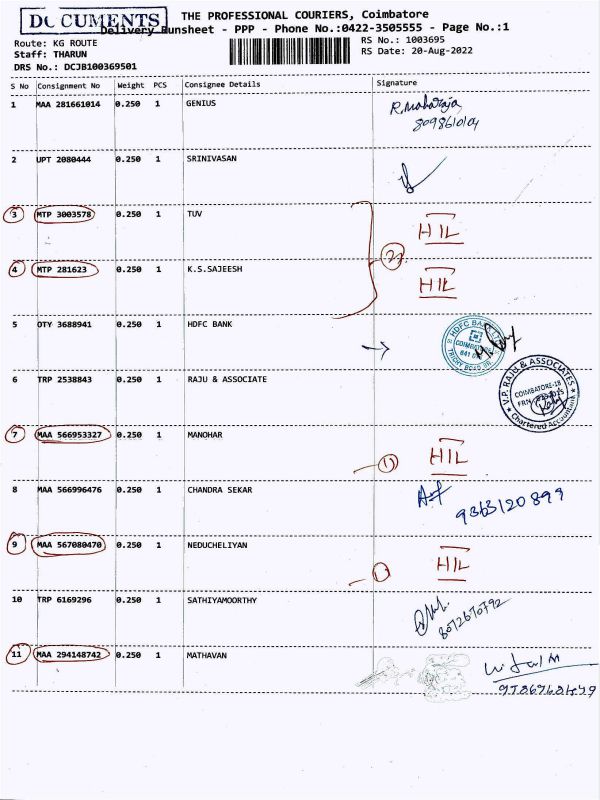 DOCUMENTS
THE PROFESSIONAL COURIERS, Coimbatore
Delivery Runsheet - PPP - Phone No.:0422-3505555 - Page No.:1
Route: KG ROUTE
RS No.: 1003695
Staff: THARUN
RS Date: 20-Aug-2022
DRS No.: DCJB100369501
S No Consignment No Weight PCS Consignee Details Signature
1 MAA 281661014 0.250 1 GENIUS
R.Maharaja
2 UPT 2080444 0.250 1 SRINIVASAN
3 MTP 3003578 0.250 1 TUV
HIL
2
4 MTP 281623 0.250 1 K.S.SAJEESH
HIL
5 OTY 3688941 0.250 1 HDFC BANK
HDFC BANK LTD
COIMBATORE
6 TRP 2538843 0.250 1 RAJU & ASSOCIATE
V.P. RAJU & ASSOCIATES
COIMBATORE-18
Chartered Accountants
7 MAA 566953327 0.250 1 MANOHAR
1 HIL
8 MAA 566996476 0.250 1 CHANDRA SEKAR
9363120899
9 MAA 567080470 0.250 1 NEDUCHELIYAN
1 HIL
10 TRP 6169296 0.250 1 SATHIYAMOORTHY
11 MAA 294148742 0.250 1 MATHAVAN